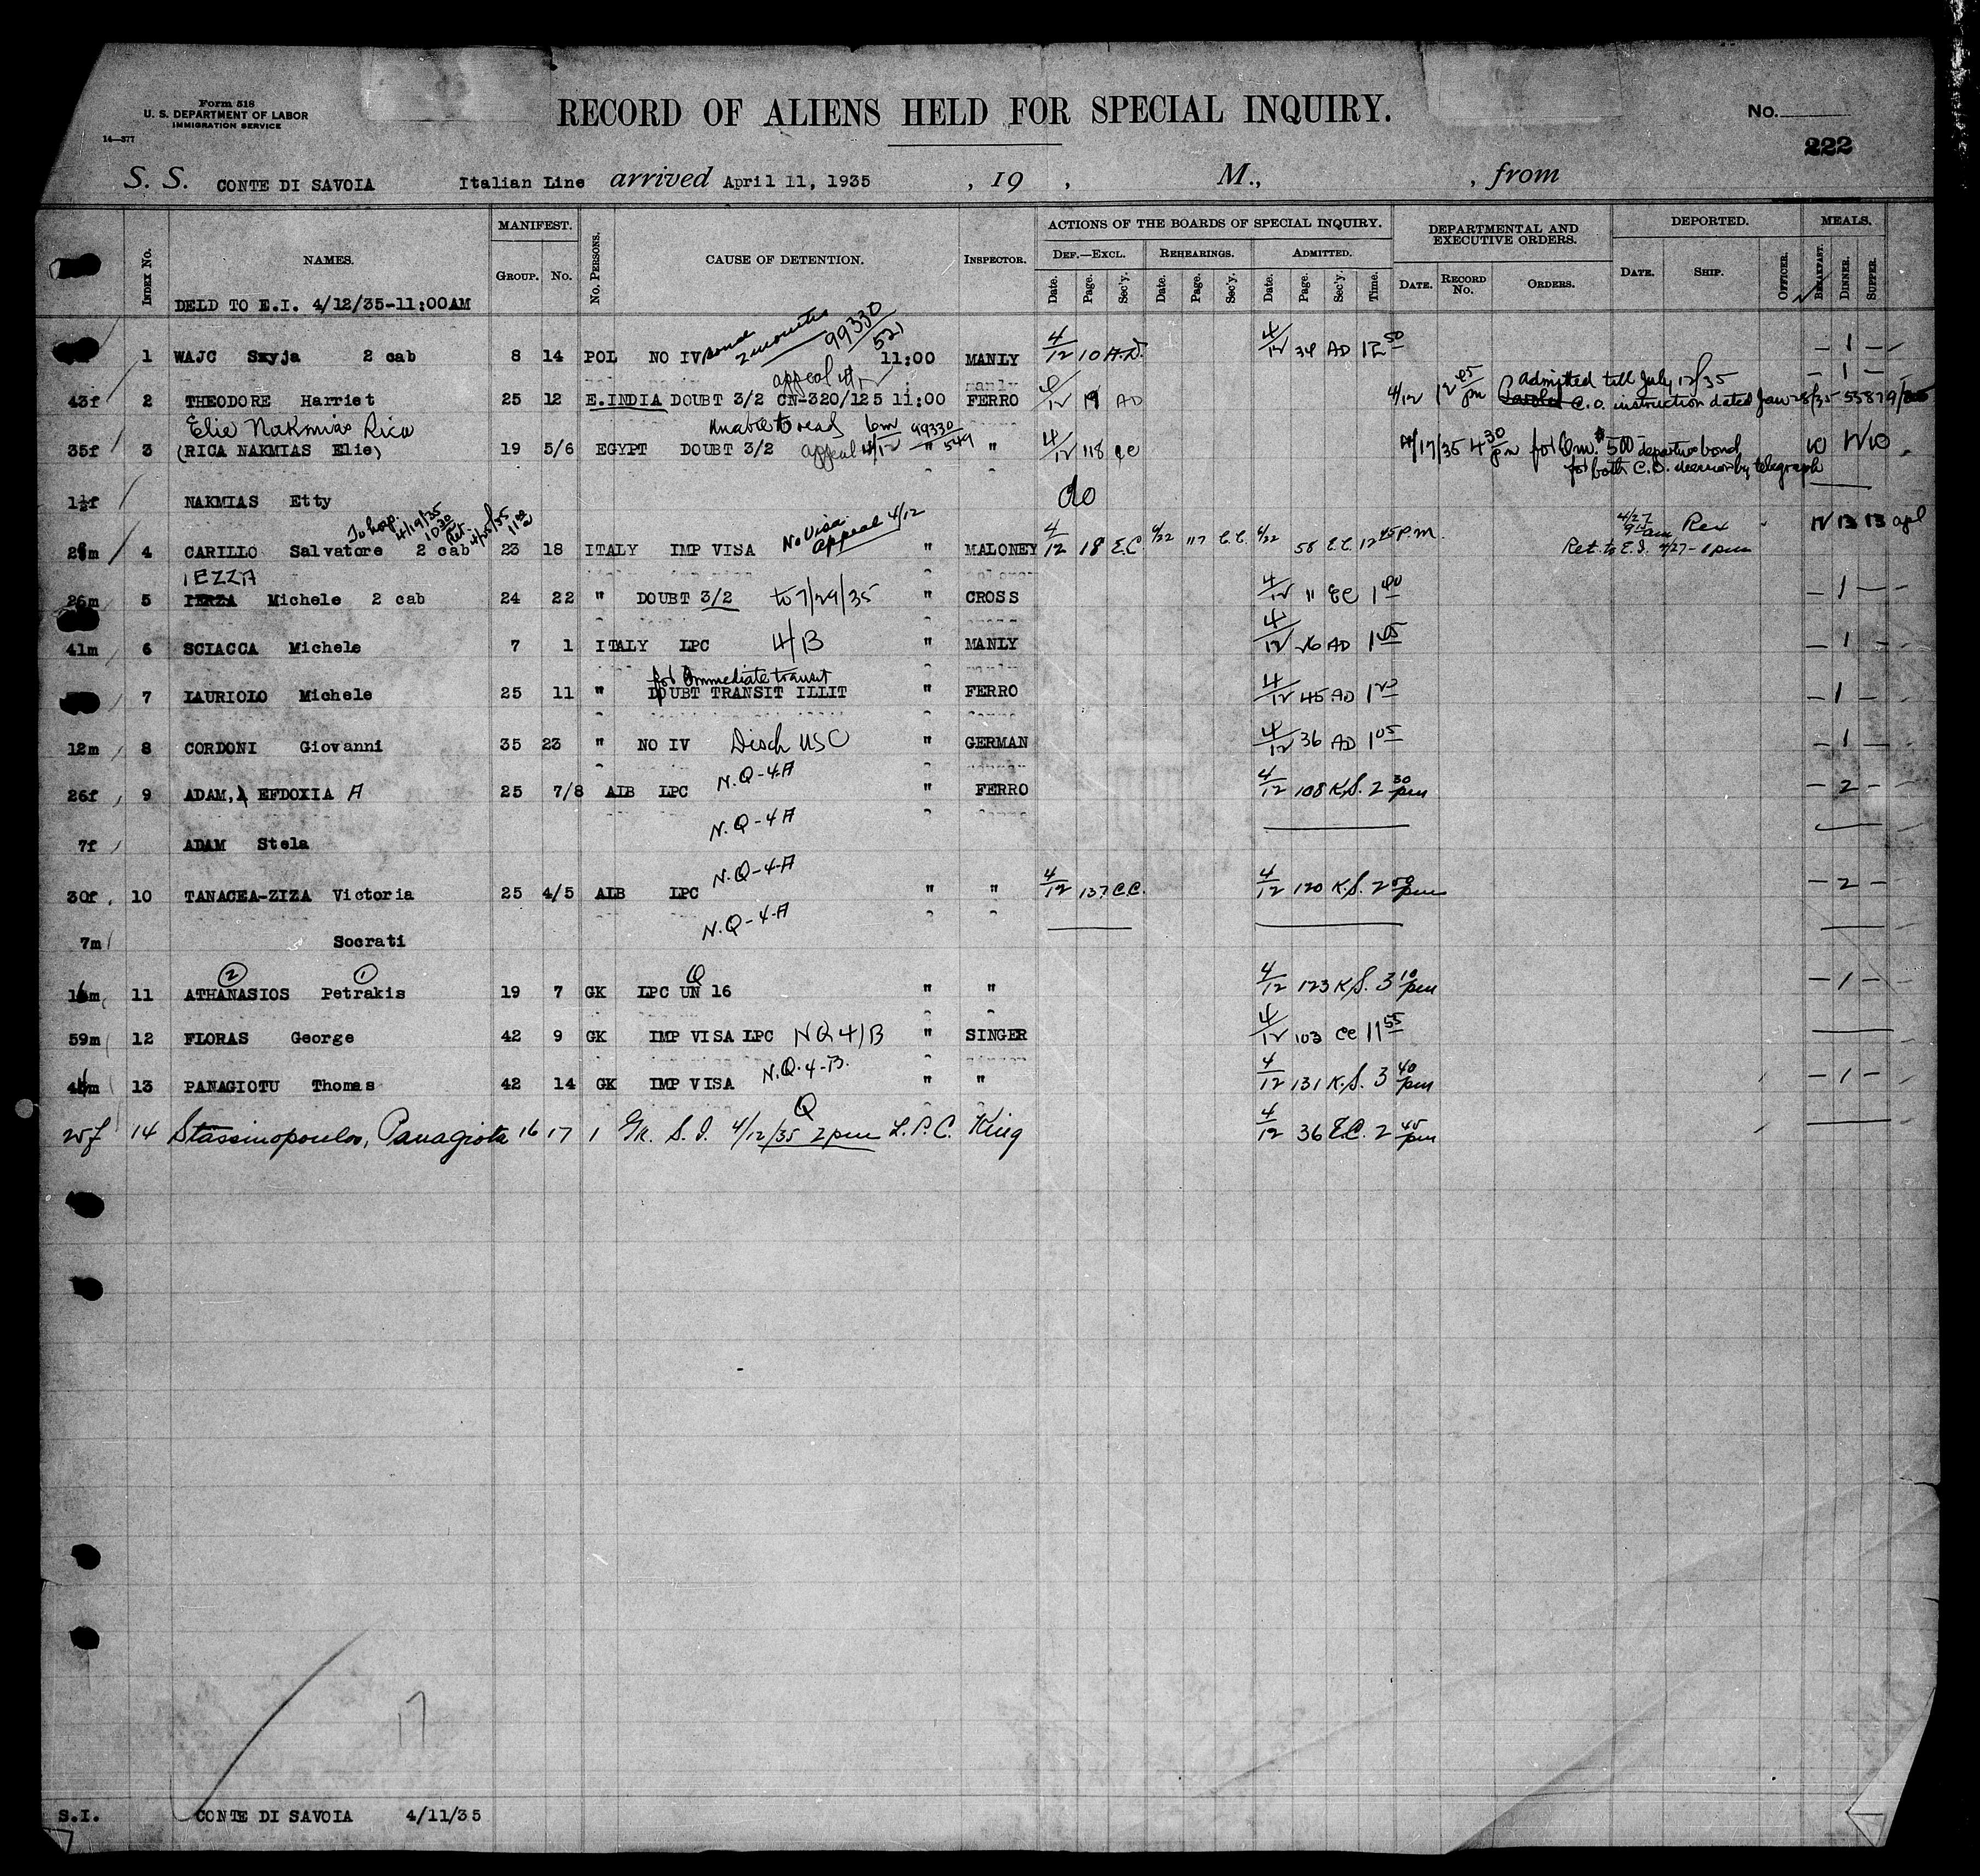 Form 518
U. S. DEPARTMENT OF LABOR
IMMIGRATION SERVICE
14—377
RECORD OF ALIENS HELD FOR SPECIAL INQUIRY.
No.
222
S. S. CONTE DI SAVOIA Italian Line arrived April 11, 1935 , 19 , M., , from
INDEX No. NAMES. MANIFEST. GROUP. No. No. PERSONS. CAUSE OF DETENTION. INSPECTOR. ACTIONS OF THE BOARDS OF SPECIAL INQUIRY. DEPARTMENTAL AND EXECUTIVE ORDERS. DEPORTED. MEALS.
DEF.—EXCL. REHEARINGS. ADMITTED.
Date. Page. Sec'y. Date. Page. Sec'y. Date. Page. Sec'y. Time. DATE. RECORD No. ORDERS. DATE. SHIP. OFFICER. BREAKFAST. DINNER. SUPPER.
DELD TO E.I. 4/12/35-11:00AM
2 months 99330/521
1 WAJC Szyja 2 cab 8 14 POL NO IV 11:00 MANLY 4/12 10 A.D. 4/12 34 AD 12 50 – 1 –
appeal 4/12
admitted till July 12/35
43f 2 THEODORE Harriet 25 12 E.INDIA DOUBT 3/2 CN-320/125 11:00 FERRO 4/12 19 AD 4/12 12 45 pm C.O. instruction dated Jan 28/35 – 1 –
Elie Nakmias Rica unable to read 99330/549
35f 3 (RICA NAKMIAS Elie) 19 5/6 EGYPT DOUBT 3/2 appeal 4/12 " " 4/12 118 4/17/35 4 30 pm for 6 m. $500 departure bond 10 11 10
for both C.O. by telegraph
1½f NAKMIAS Etty do
To hosp. 4/19/35 10 30 Ret 4/25/35 11 00 a No Visa Appeal 4/12
4 CARILLO Salvatore 2 cab 23 18 ITALY IMP VISA " MALONEY 4/12 18 E.C 4/22 117 E.C. 4/22 58 E.C 12 45 P.M. 4/27 9 am Rex 12 13 13
Ret. to E.I. 4/27 - 1 pm
IEZZA
26m 5 Michele 2 cab 24 22 " DOUBT 3/2 to 7/29/35 " CROSS 4/12 11 EC 1 40 – 1 –
41m 6 SCIACCA Michele 7 1 ITALY LPC 4/B " MANLY 4/12 26 AD 1 45 – 1 –
for Immediate transit
7 LAURIOLO Michele 25 11 " DOUBT TRANSIT ILLIT " FERRO 4/12 45 AD 1 20 – 1 –
12m 8 CORDONI Giovanni 35 23 " NO IV Disch USC " GERMAN 4/12 36 AD 1 05 – 1 –
26f 9 ADAM, EFDOXIA A 25 7/8 ALB LPC N.Q-4A " FERRO 4/12 108 K.S. 2 30 pm – 2 –
7f ADAM Stela N.Q-4A
30f 10 TANACEA-ZIZA Victoria 25 4/5 ALB LPC N.Q-4-A " " 4/12 137 C.C. 4/12 120 K.S. 2 50 pm – 2 –
7m Socrati N.Q-4-A
② ① Q
11 ATHANASIOS Petrakis 19 7 GK LPC UN 16 " " 4/12 123 K.S. 3 10 pm – 1 –
59m 12 FLORAS George 42 9 GK IMP VISA LPC NQ 4/B " SINGER 4/12 103 CC 11 55
13 PANAGIOTU Thomas 42 14 GK IMP VISA N.Q.4-B. " " 4/12 131 K.S. 3 40 pm – 1 –
Q
25f 14 Stassinopoulos, Panagiota 16 17 1 Gk. S.I. 4/12/35 2pm L.P.C. King 4/12 36 E.C. 2 45 pm
17
S.I. CONTE DI SAVOIA 4/11/35